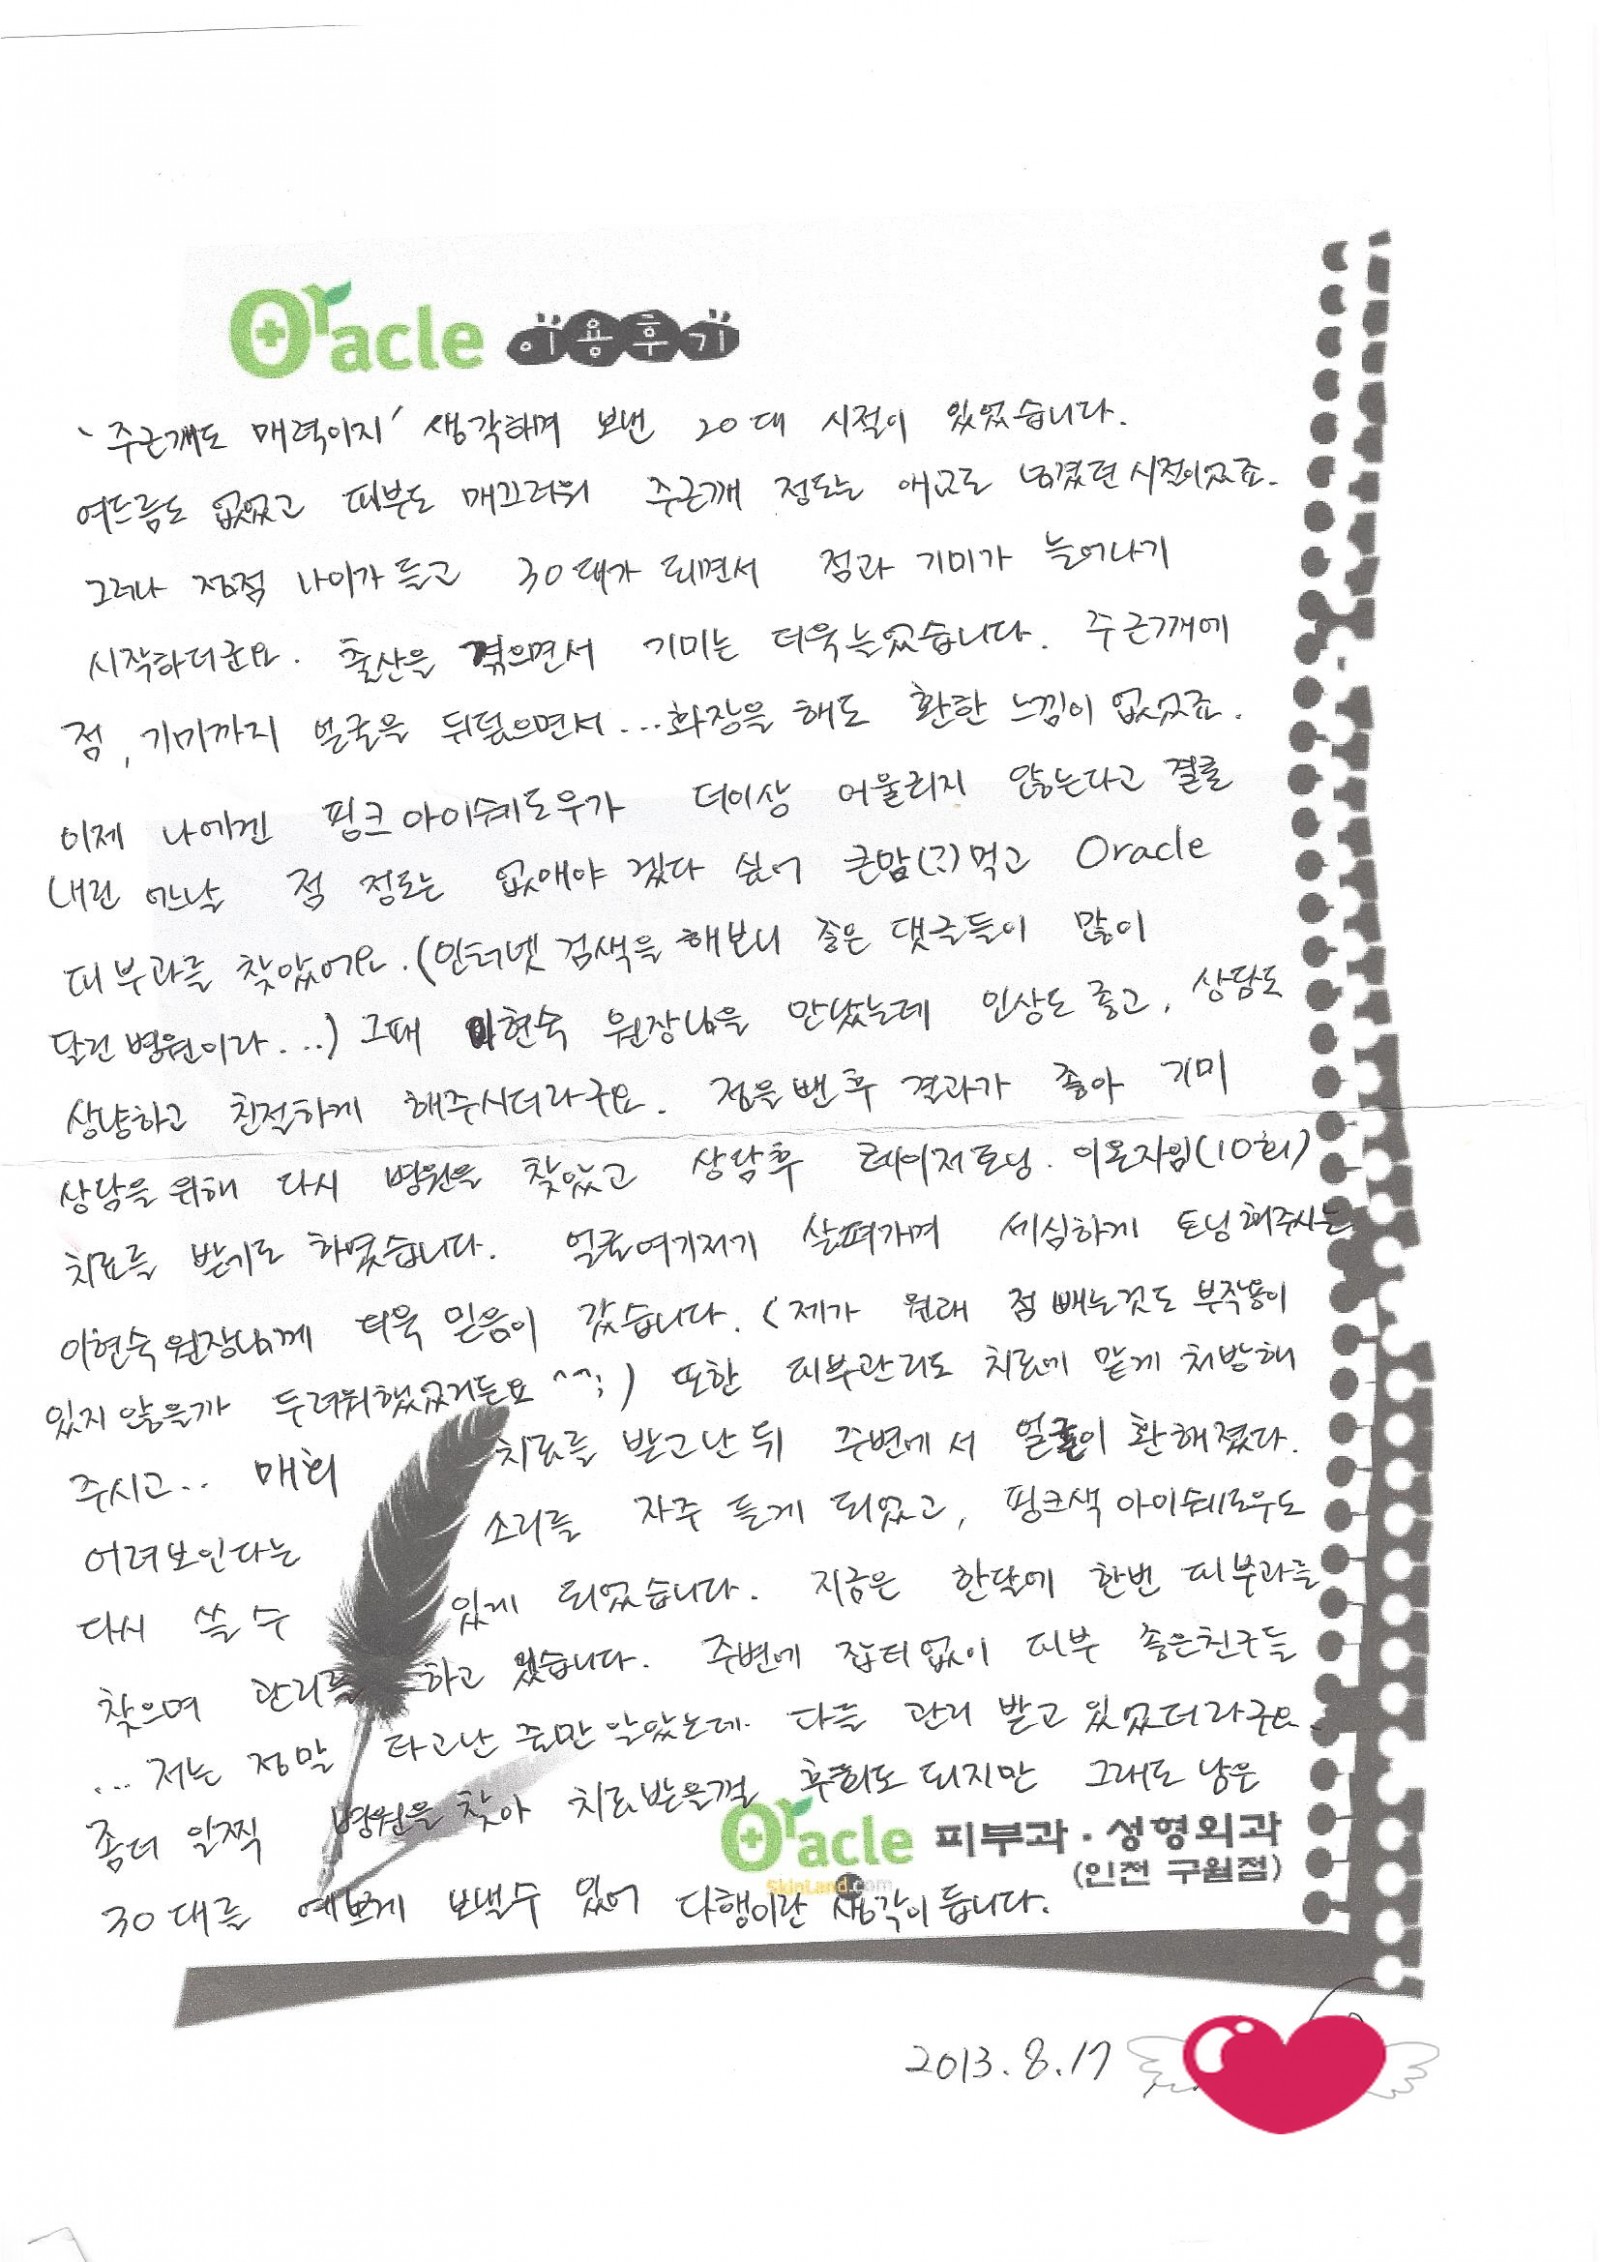 Oracle 이용후기
'주근깨도 매력이지' 생각하며 보낸 20대 시절이 있었습니다.
여드름도 없었고 피부도 매끄러워 주근깨 정도는 애교로 넘겼던 시절이었죠.
그러나 점점 나이가 들고 30대가 되면서 점과 기미가 늘어나기
시작하더군요. 출산을 겪으면서 기미는 더욱 늘었습니다. 주근깨에
점, 기미까지 얼굴을 뒤덮으면서...화장을 해도 환한 느낌이 없었죠.
이제 나에겐 핑크 아이쉐도우가 더이상 어울리지 않는다고 결론
내린 어느날 점 정도는 없애야 겠다 싶어 큰맘(?)먹고 Oracle
피부과를 찾았어요.(인터넷 검색을 해보니 좋은 댓글들이 많이
달린 병원이라...) 그때 이현숙 원장님을 만났는데 인상도 좋고, 상담도
상냥하고 친절하게 해주시더라구요. 점을 뺀 후 결과가 좋아 기미
상담을 위해 다시 병원을 찾았고 상담후 레이저토닝. 이온자임(10회)
치료를 받기로 하였습니다. 얼굴여기저기 살펴가며 세심하게 토닝해주시는
이현숙원장님께 더욱 믿음이 갔습니다. (제가 원래 점 빼는것도 부작용이
있지 않을까 두려워했었거든요^^;) 또한 피부관리도 치료에 맞게 처방해
주시고.. 매회 치료를 받고난 뒤 주변에서 얼굴이 환해졌다.
어려보인다는 소리를 자주 듣게 되었고, 핑크색 아이쉐도우도
다시 쓸 수 있게 되었습니다. 지금은 한달에 한번 피부과를
찾으며 관리를 하고 있습니다. 주변에 잡티없이 피부 좋은친구들
...저는 정말 타고난 줄만 알았는데. 다들 관리 받고 있었더라구요.
좀더 일찍 병원을 찾아 치료받을껄 후회도 되지만 그래도 남은
Oracle 피부과·성형외과
(인천 구월점)
SkinLand.com
30대를 예쁘게 보낼수 있어 다행이란 생각이 듭니다.
2013.8.17